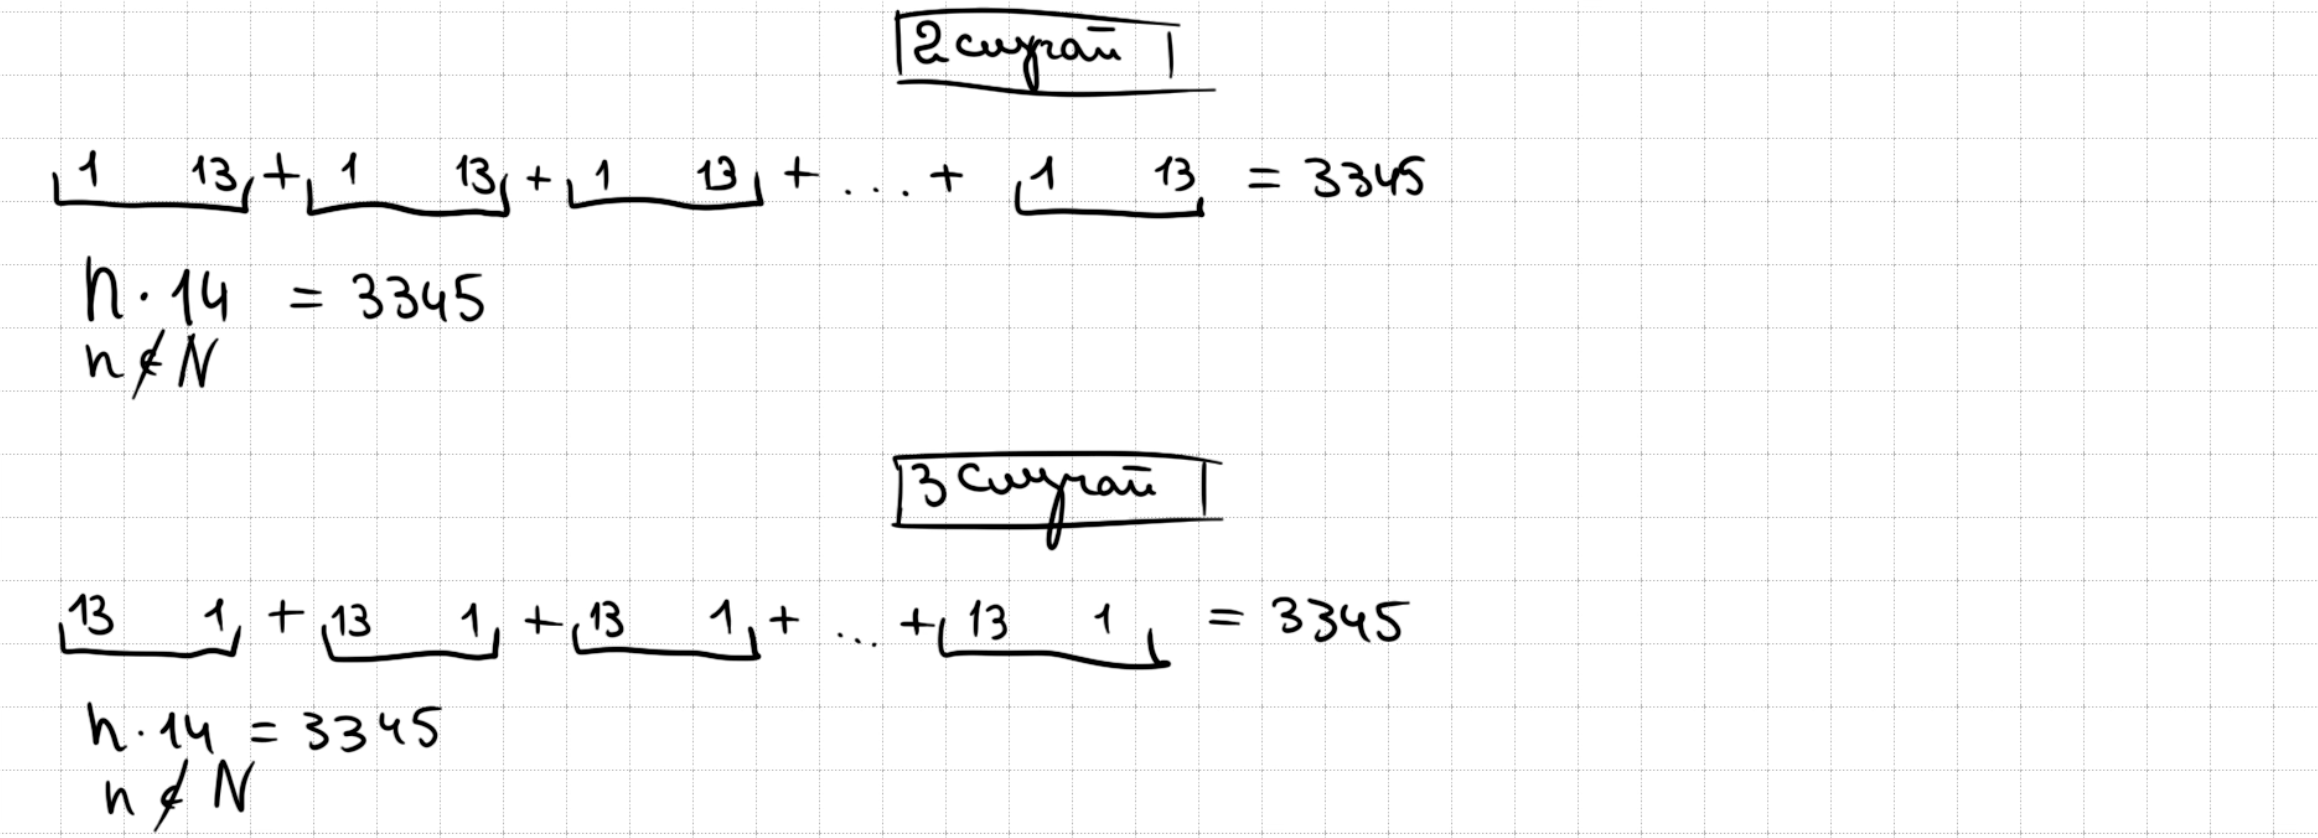 2 случай
1 13 + 1 13 + 1 13 + ... + 1 13 = 3345
n · 14 = 3345
n ∉ N
3 Случай
13 1 + 13 1 + 13 1 + ... + 13 1 = 3345
n · 14 = 3345
n ∉ N